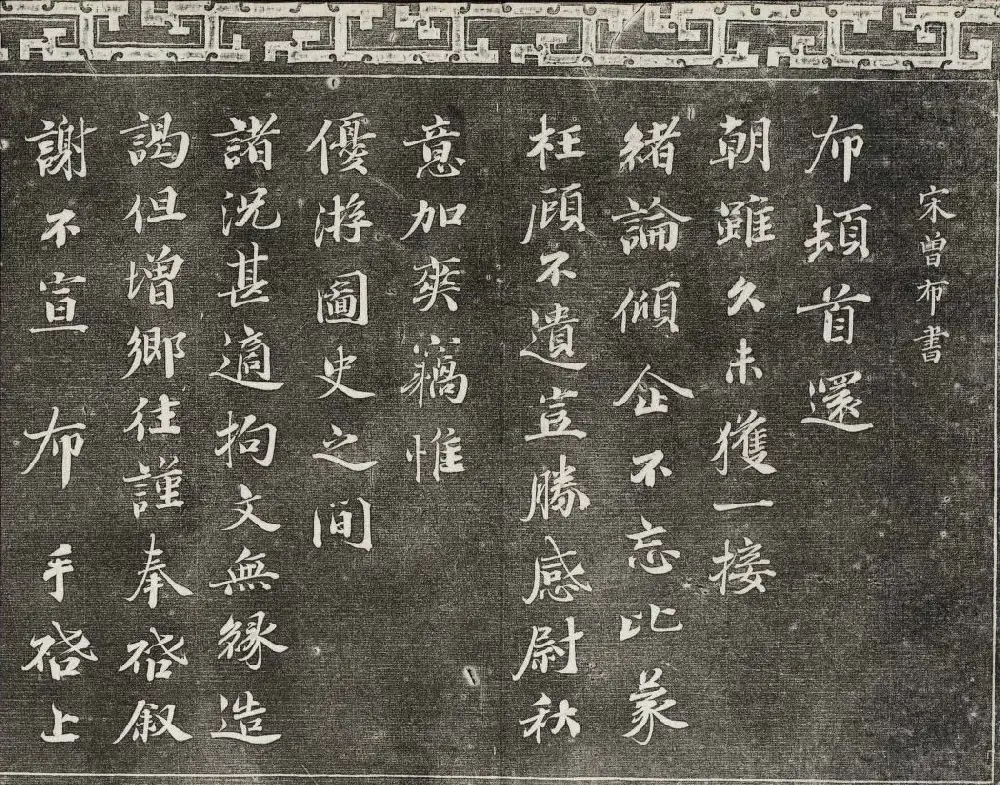 宋曾布書
布頓首還
朝雖久未獲一接
緒論傾企不忘比蒙
枉顧不遺豈勝感尉秋
意加爽竊惟
優游圖史之間
諸況甚適拘文無緣造
謁但增鄉往謹奉啓叙
謝不宣 布 手啓上